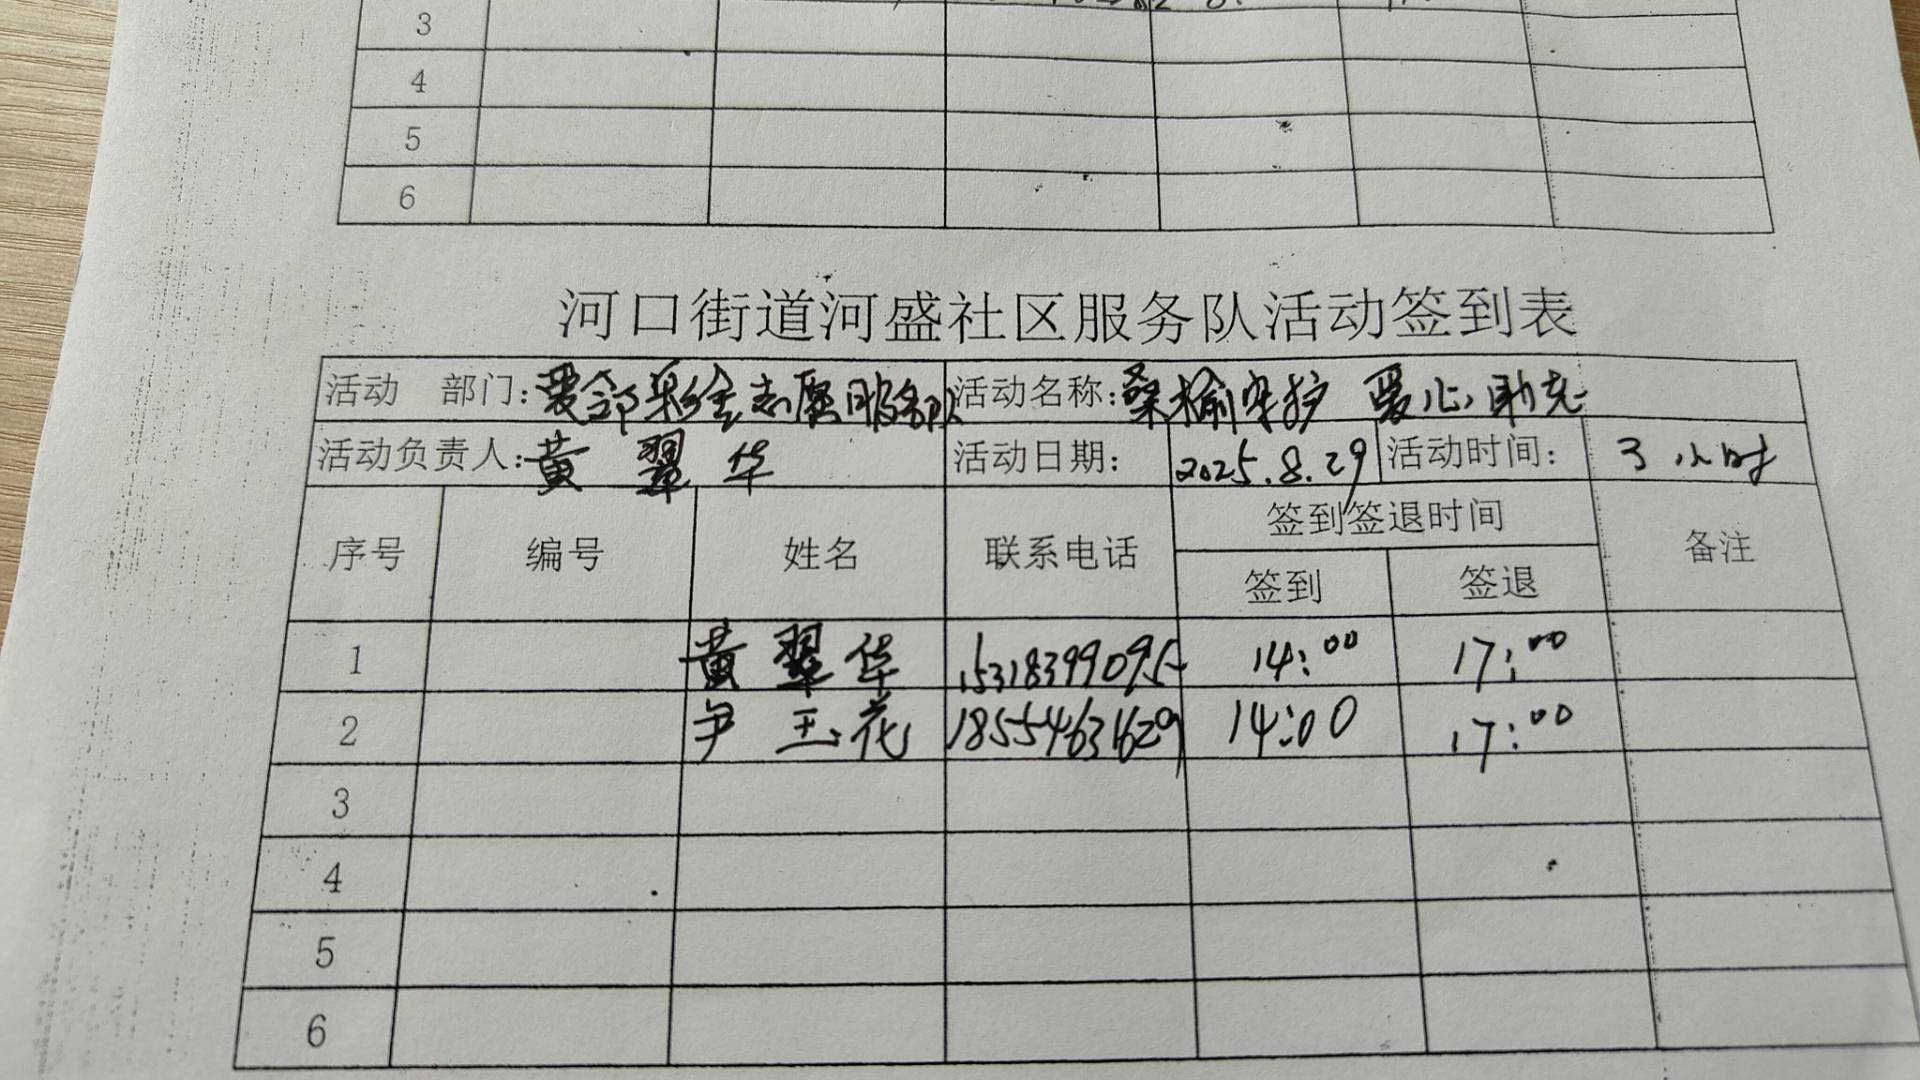 3
4
5
6
河口街道河盛社区服务队活动签到表
活动 部门: 爱邻彩绘志愿服务队 活动名称: 桑榆守护 爱心助老
活动负责人: 黄翠华 活动日期: 2025.8.29 活动时间: 3小时
序号 编号 姓名 联系电话 签到签退时间 备注
签到 签退
1 黄翠华 15318399095 14:00 17:00
2 尹玉花 18554631629 14:00 17:00
3
4
5
6